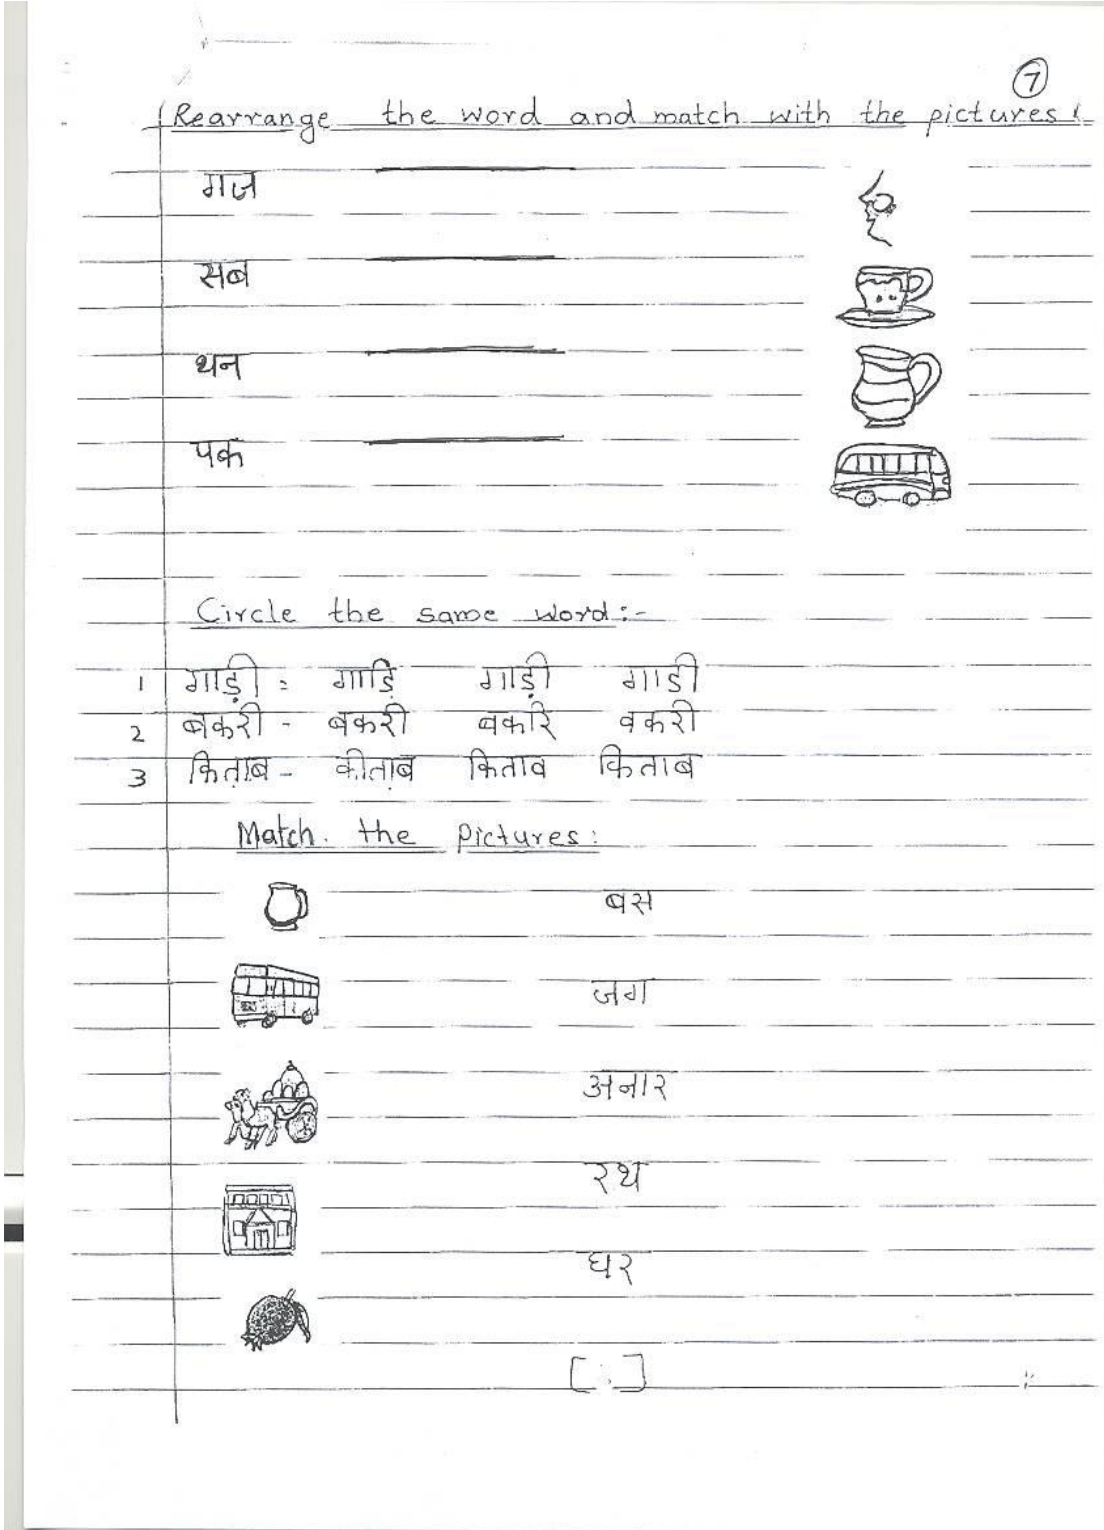 7
Rearrange the word and match with the pictures:
गज
सब
थन
पक
Circle the same word:-
1 गाड़ी = गाडि़ गाड़ी गाडी
2 बकरी - बकरी बकरि वकरी
3 किताब - कीताब किताव किताब
Match the pictures:
बस
जग
अनार
रथ
घर